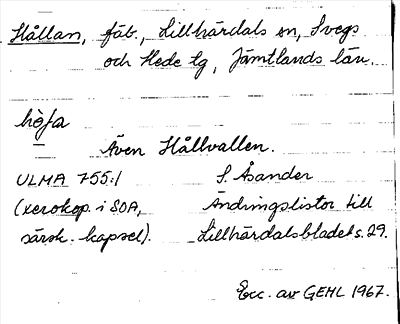 Hållan, fäb., Lillhärdals sn, Svegs
och Hede tg, Jämtlands län.
Även Hållvallen.
ULMA 755:1 S Åsander
(xerokop. i SOA, Ändringslistor till
särsk. kapsel). Lillhärdalsbladet s. 29.
Exc. av GEHL 1967.